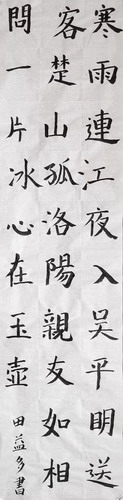 寒雨連江夜入吴平明送
客楚山孤洛陽親友如相
問一片冰心在玉壺
田益多書